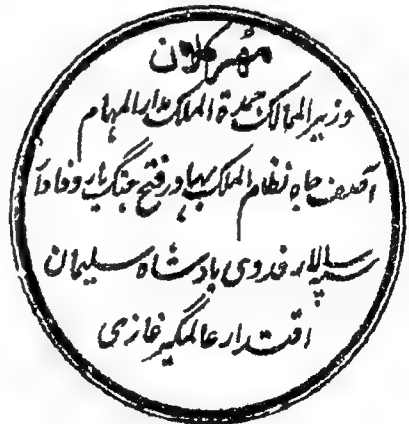 مُهر کلان
وزیرالممالک جمدة الملک مدارالمہام
آصف جاہ نظام الملک بہادر فتح جنگ یار وفادار
سپہ سالار فدوی بادشاہ سلیمان
اقتدار عالمگیر غازی